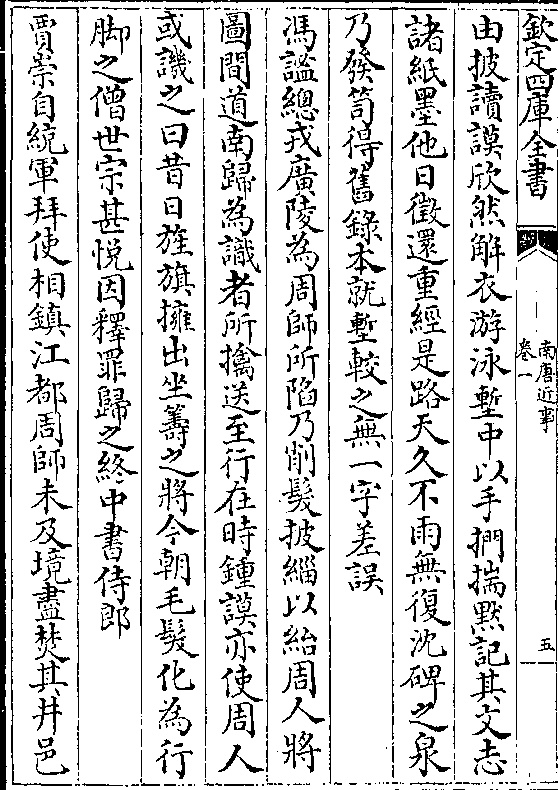 欽定四庫全書
南唐近事
卷一
五
由披讀謨欣然解衣游泳塹中以手捫揣默記其文志
諸紙墨他日徵還重經是路天久不雨無復沈碑之泉
乃發笥得舊錄本就塹較之無一字差誤
馮謐總戎廣陵為周師所陷乃削髮披緇以紿周人將
圖間道南歸為識者所擒送至行在時鍾謨亦使周人
或譏之曰昔日旌旗擁出坐籌之將今朝毛髮化為行
脚之僧世宗甚悦因釋罪歸之終中書侍郎
賈崇自統軍拜使相鎮江都周師未及境盡焚其井邑